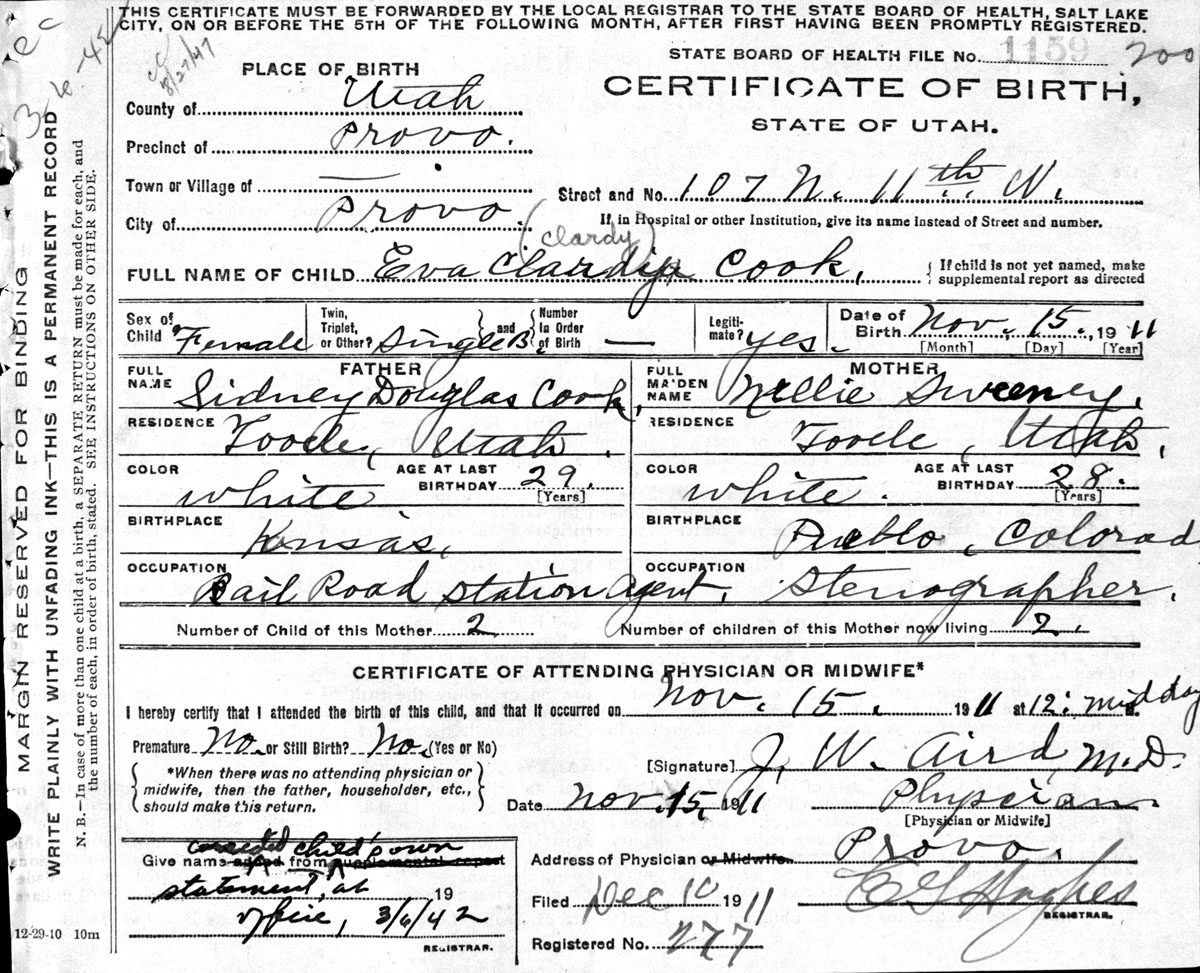 THIS CERTIFICATE MUST BE FORWARDED BY THE LOCAL REGISTRAR TO THE STATE BOARD OF HEALTH, SALT LAKE
CITY, ON OR BEFORE THE 5TH OF THE FOLLOWING MONTH, AFTER FIRST HAVING BEEN PROMPTLY REGISTERED.
cc
3-6-42
cc
8/27/47
STATE BOARD OF HEALTH FILE No. 1159 200
PLACE OF BIRTH
CERTIFICATE OF BIRTH,
STATE OF UTAH.
County of Utah
Precinct of Provo.
Town or Village of —
Street and No. 107 N. 11th W.
City of Provo.
If, in Hospital or other Institution, give its name instead of Street and number.
(Clardy)
FULL NAME OF CHILD Eva Clardip Cook, { If child is not yet named, make
supplemental report as directed
Sex of Child Female Twin, Triplet, or Other? Single B. and Number In Order of Birth — Legiti-mate? yes. Date of Birth Nov. 15., 1911
[Month] [Day] [Year]
FATHER MOTHER
FULL NAME Sidney Douglas Cook, FULL MAIDEN NAME Nellie Sweeney.
RESIDENCE Tooele, Utah. RESIDENCE Tooele, Utah.
COLOR white. AGE AT LAST BIRTHDAY 29. [Years] COLOR white. AGE AT LAST BIRTHDAY 28. [Years]
BIRTHPLACE Kansas, BIRTHPLACE Pueblo, Colorad
OCCUPATION Rail Road station agent. OCCUPATION Stenographer.
Number of Child of this Mother 2 Number of children of this Mother now living 2.
CERTIFICATE OF ATTENDING PHYSICIAN OR MIDWIFE*
I hereby certify that I attended the birth of this child, and that it occurred on Nov. 15. 1911 at 12: midday
Premature No. or Still Birth? No. (Yes or No)
[Signature] J. W. Aird, M.D.
{ *When there was no attending physician or
midwife, then the father, householder, etc.,
should make this return. }
Date Nov. 15, 1911 Physician
[Physician or Midwife]
corrected child's own
Give name added from supplemental repost
statement, at 19
office, 3/6/42
REGISTRAR.
Address of Physician or Midwife. Provo.
Filed Dec 10 1911 E G Hughes
REGISTRAR.
Registered No. 277
12-29-10 10m
MARGIN RESERVED FOR BINDING
WRITE PLAINLY WITH UNFADING INK—THIS IS A PERMANENT RECORD
N. B.—In case of more than one child at a birth, a SEPARATE RETURN must be made for each, and
the number of each, in order of birth, stated. SEE INSTRUCTIONS ON OTHER SIDE.